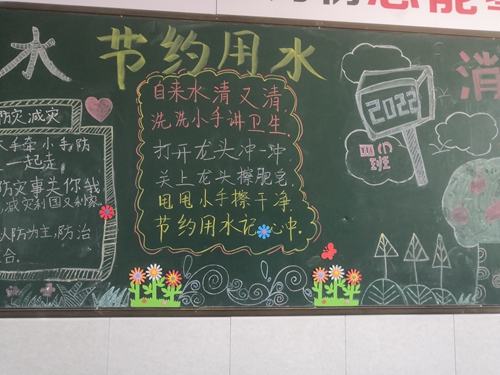 水 节约用水 消
防灾 减灾
大手牵小手防
一起走
防灾事关你我
减灾利国又利家
人防为主,防治
合.
自来水清又清,
洗洗小手讲卫生.
打开龙头冲一冲,
关上龙头擦肥皂
甩甩小手擦干净,
节约用水记心中.
2022
四(1)
班